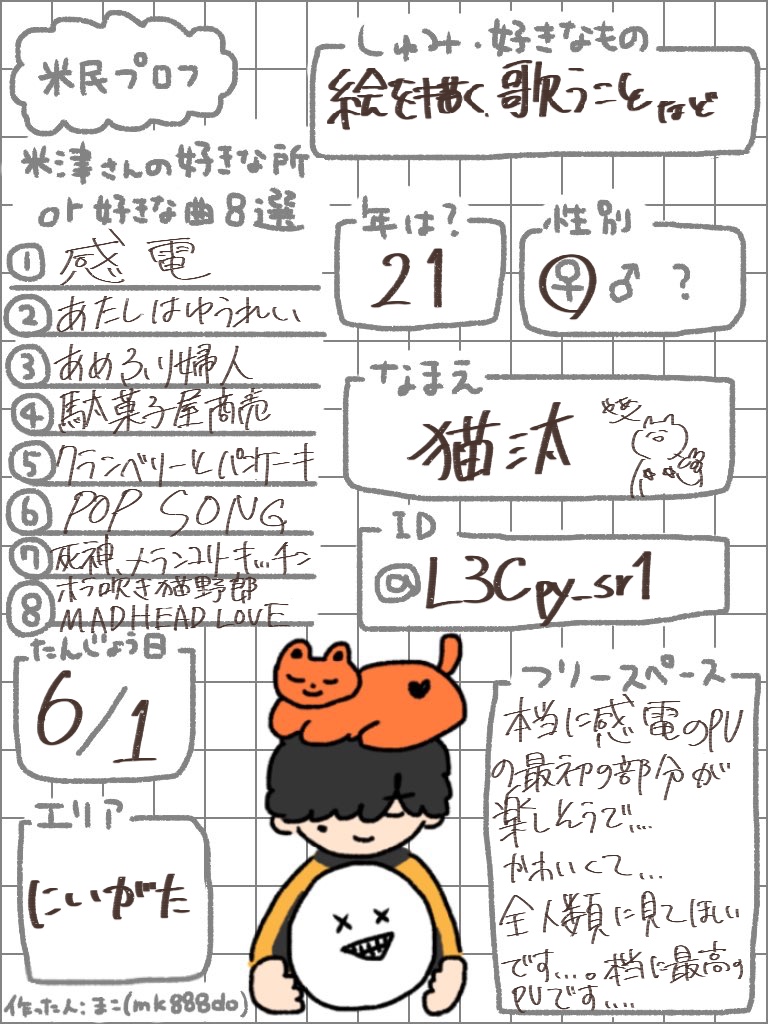 米民プロフ
しゅみ・好きなもの
絵を描く、歌うこと など
米津さんの好きな所
or 好きな曲8選
① 感電
② あたしはゆうれい
③ あめふり婦人
④ 駄菓子屋商売
⑤ クランベリーとパンケーキ
⑥ POP SONG
⑦ 死神、メランコリーキッチン
⑧ ホラ吹き猫野郎
MADHEAD LOVE
年は?
21
性別
♀ ♂ ?
なまえ
猫汰
ID
@L3Cpy_sr1
たんじょう日
6/1
エリア
にいがた
フリースペース
本当に感電のPV
の最初の部分が
楽しそうで...
かわいくて...
全人類に見てほしい
です...。本当に最高の
PVです....
作った人:まこ(mk888do)